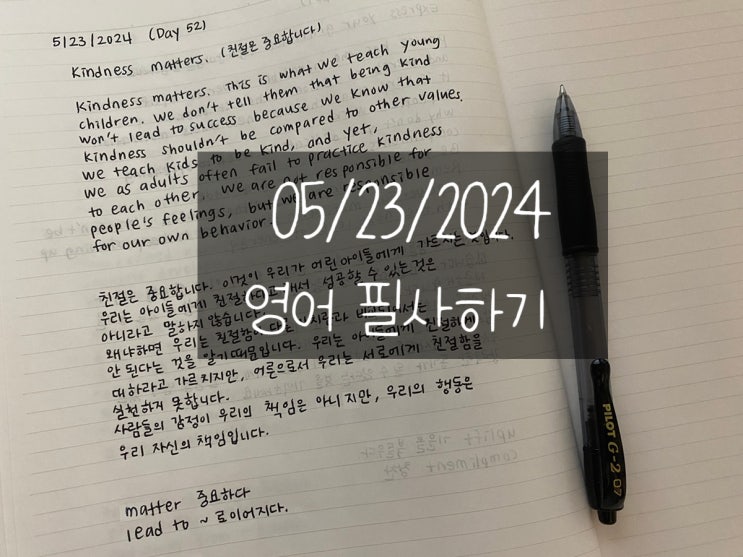 5/23/2024 (Day 52)
Kindness matters. (친절은 중요합니다)
Kindness matters. This is what we teach young
children. We don't tell them that being kind
won't lead to success because we know that
kindness shouldn't be compared to other values.
we teach kids to be kind, and yet,
we as adults often fail to practice kindness
to each other. We are not responsible for
people's feelings, but we are responsible
for our own behavior
05/23/2024
영어 필사하기
친절은 중요합니다. 이것이 우리가 어린아이들에게 가르치는 것입니다.
우리는 아이들에게 친절하다고 해서 성공할 수 있는것은
아니라고 말하지 않습니다.
왜냐하면 우리는 친절함이 다른
안 된다는 것을 알기 때문입니다. 우리는 아이들에게 친절하게
대하라고 가르치지만, 어른으로서 우리는 서로에게 친절함을
실천하지 못합니다.
사람들의 감정이 우리의 책임은 아니지만, 우리의 행동은
우리 자신의 책임입니다.
matter 중요하다
lead to ~로이어지다.
PILOT G-2 07